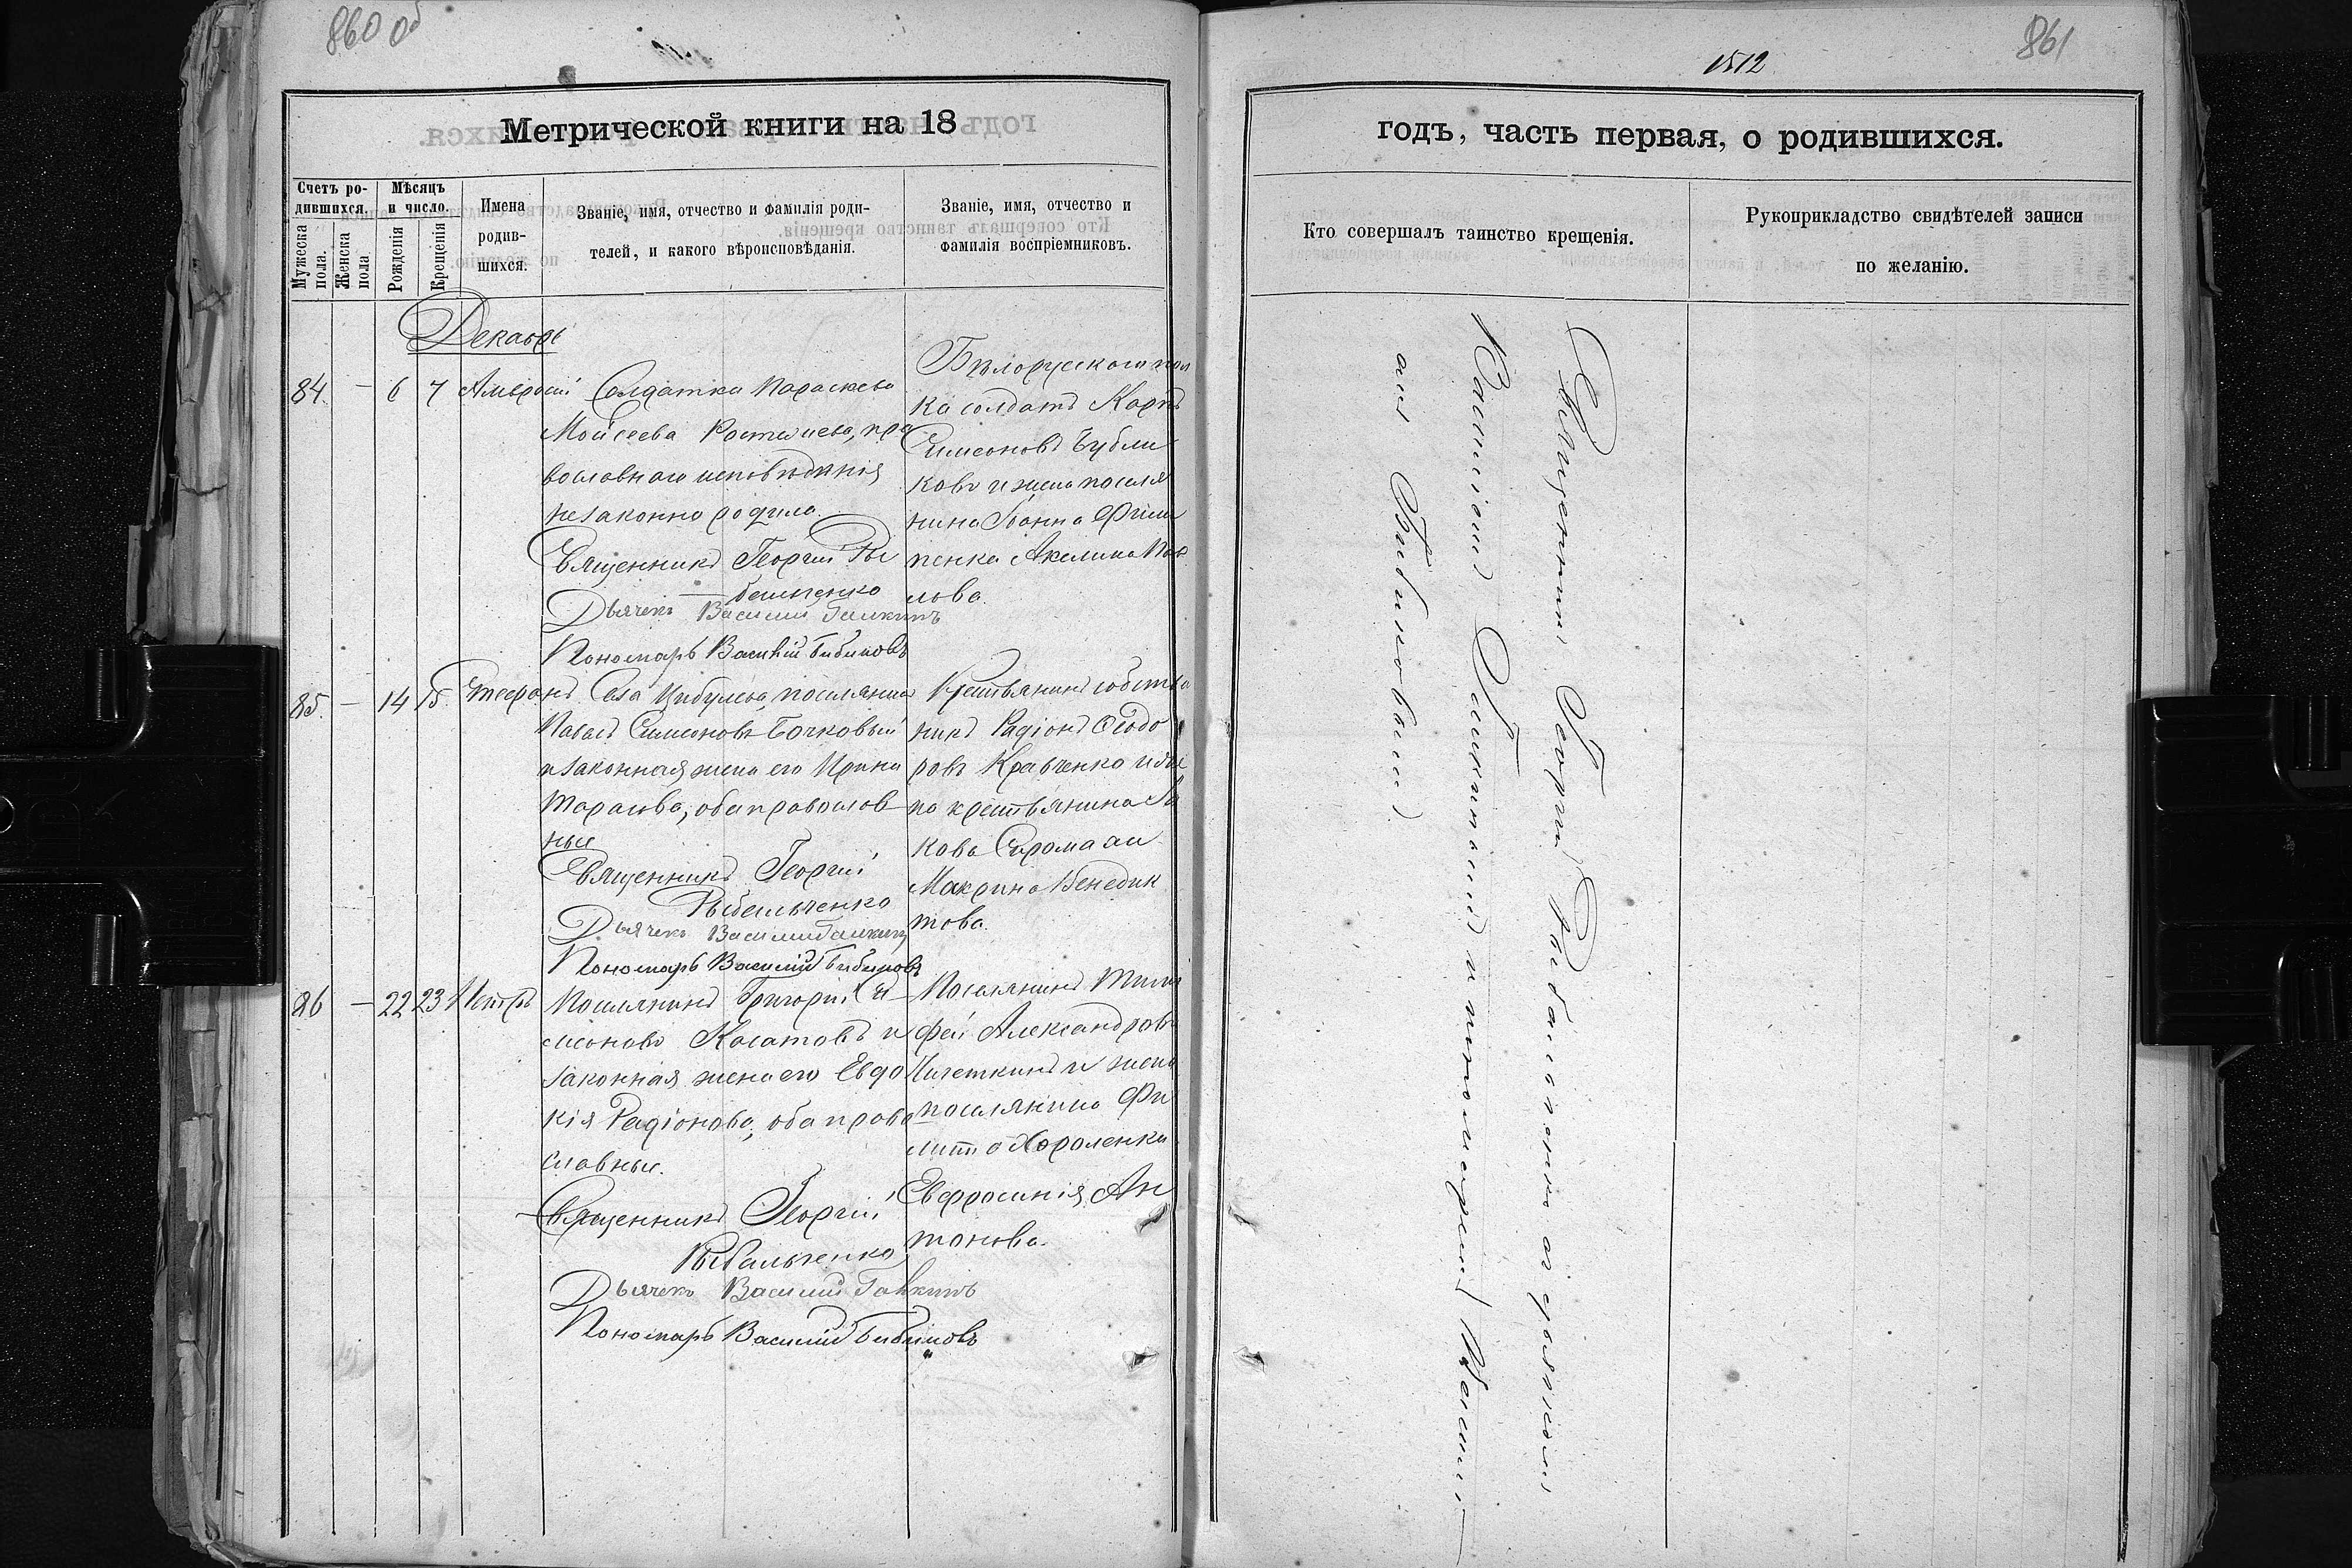 860 об
Метрической книги на 18
Счетъ ро-
дившихся.
Мѣсяцъ
и число.
Мужеска
пола.
Женска
пола
Рожденія
Крещенія
Имена
родив-
шихся.
Званіе, имя, отчество и фамилія роди-
телей, и какого вѣроисповѣданія.
Званіе, имя, отчество и
фамилія воспріемниковъ.
Декабрь
84. – 6 7 Амвросій
Солдатка Параскева
Мойсеева, пра
вославнаго исповѣданія
незаконно родила.
Священникъ Георгій Ры
бальченко
Дьячекъ Василий Галкинъ
Пономарь Василій Бибиковъ
Бѣлорускаго пол
ка солдатъ Карпъ
Симеоновъ Бубли
ковъ и жена поселя
нина Іоанна Фили
пенка Акелина Пав
лова.
85. – 14 15. Стефанъ
Села Цибулева, поселянинъ
Павелъ Симеоновъ Бочковый
и законная жена его Ирина
Тарасова, оба православ
ные
Священникъ Георгій
Рыбальченко
Дьячекъ Василий Галкинъ
Пономарь Василій Бибиковъ
Крестьянинъ собствен
никъ Радіонъ Ѳеодо
ровъ Кравченко и
крестьянина Іа
кова
Макрина Бенедик
това.
86 – 22 23
Поселянинъ Григорій Си
меоновъ Касатовъ и
законная жена его Евдо
кія Радіонова, оба право
славные.
Священникъ Георгій
Рыбальченко
Дьячекъ Василий Галкинъ
Пономарь Василій Бибиковъ
Поселянинъ Тимо
фей Александровъ
и жена
поселянина Фи
липа Хороленка
Евфросинія Ан
тонова.
861
1512
годъ, часть первая, о родившихся.
Кто совершалъ таинство крещенія.
Рукоприкладство свидѣтелей записи
по желанію.
Священникъ Георгій Рыбальченко съ дьячкомъ
Василіемъ Галкинымъ и пономаремъ Василі
емъ Бибиковымъ